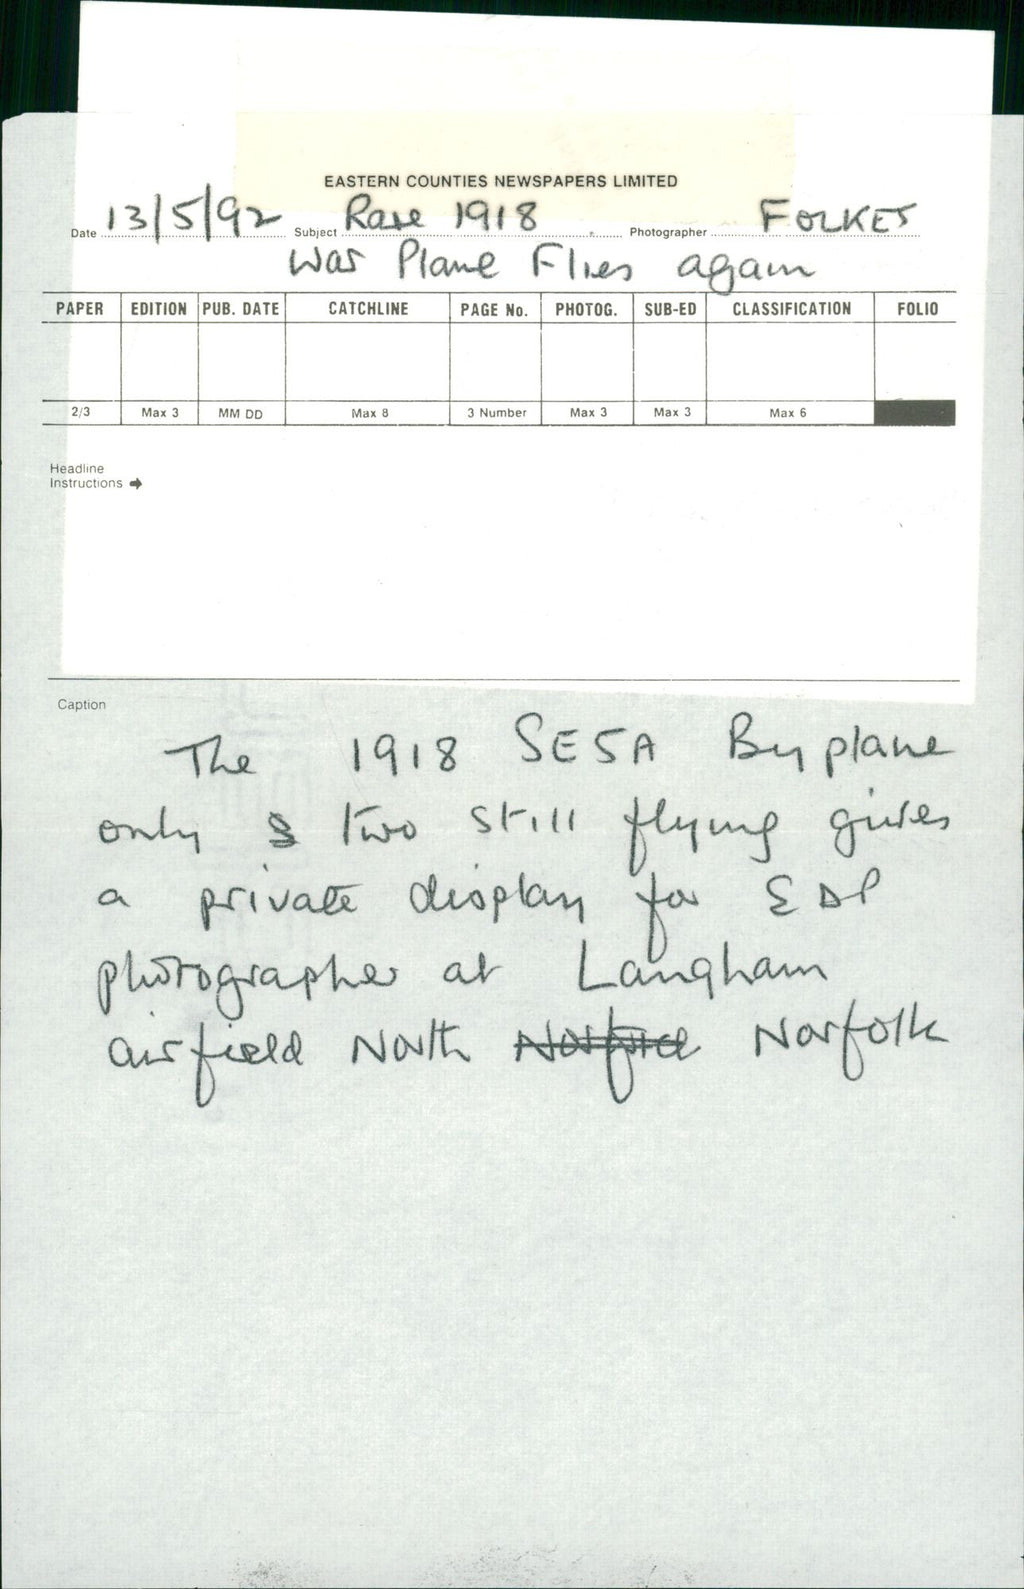 EASTERN COUNTIES NEWSPAPERS LIMITED
Date 13/5/92 Subject Rare 1918 Photographer FOLKES
War Plane Flies again
PAPER EDITION PUB. DATE CATCHLINE PAGE No. PHOTOG. SUB-ED CLASSIFICATION FOLIO
2/3 Max 3 MM DD Max 8 3 Number Max 3 Max 3 Max 6
Headline
Instructions
Caption
The 1918 SE5A Byplane
only two still flying gives
a private display for EDP
photographer at Langham
airfield North Norfolk